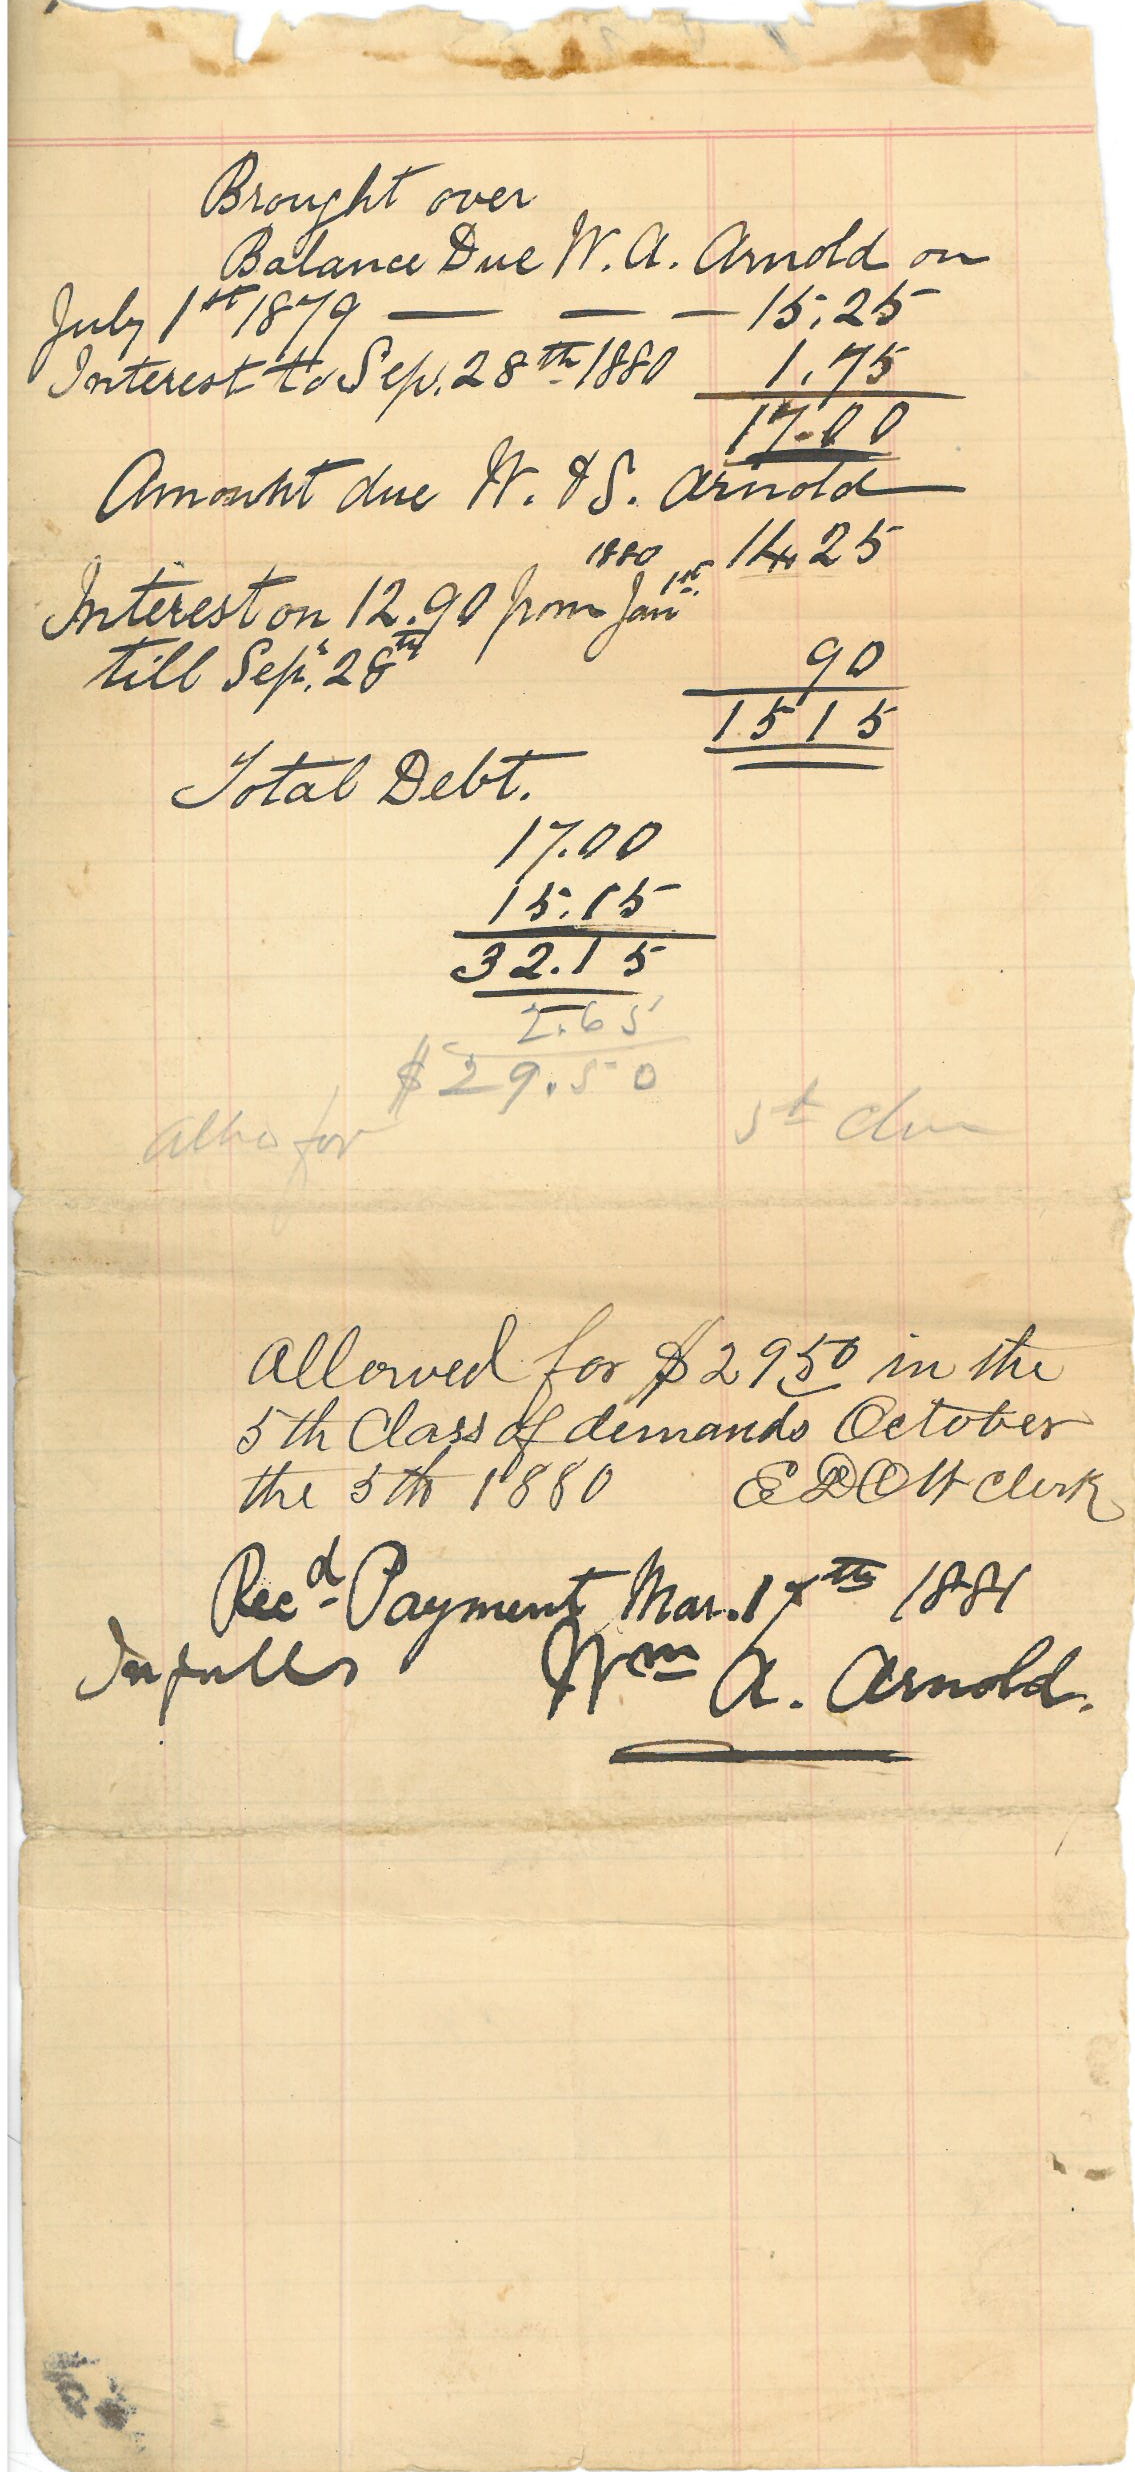 Brought over
Balance Due W. A. Arnold on
July 1st 1879 — — — 15.25
Interest to Sep. 28th 1880 1.75
17.00
Amount due W. & S. Arnold
14.25
Interest on 12.90 from Jan 1st 1880
till Sept. 28th 90
15 15
Total Debt.
17.00
15.15
32.15
2.65
$29.50
for 5th
Allowed for $29 50 in the
5th Class of demands October
the 5th 1880 Clerk
Recd Payment Mar. 17th 1881
In full Wm A. Arnold.